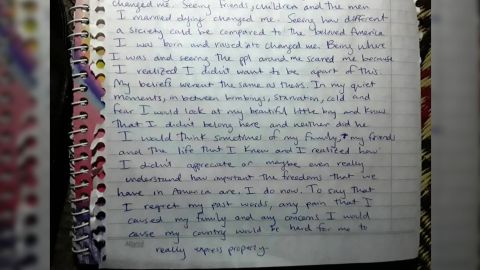 changed me. Seeing friends, children and the men
I married dying changed me. Seeing how different
a society could be compared to the beloved America
I was born and raised into changed me. Being where
I was and seeing the ppl around me scared me because
I realized I didn't want to be apart of this.
My beliefs werent the same as theirs. In my quiet
moments, in between bombings, starvation, cold and
fear I would look at my beautiful little boy and know
that I didn't belong here and neither did he.
I would think sometimes of my family, + my friends
and the life that I knew and I realized how
I didn't appreciate or maybe even really
understand how important the freedoms that we
have in America are. I do now. To say that
I regret my past words, any pain that I
caused my family and any concerns I would
cause my country would be hard for me to
really express properly.